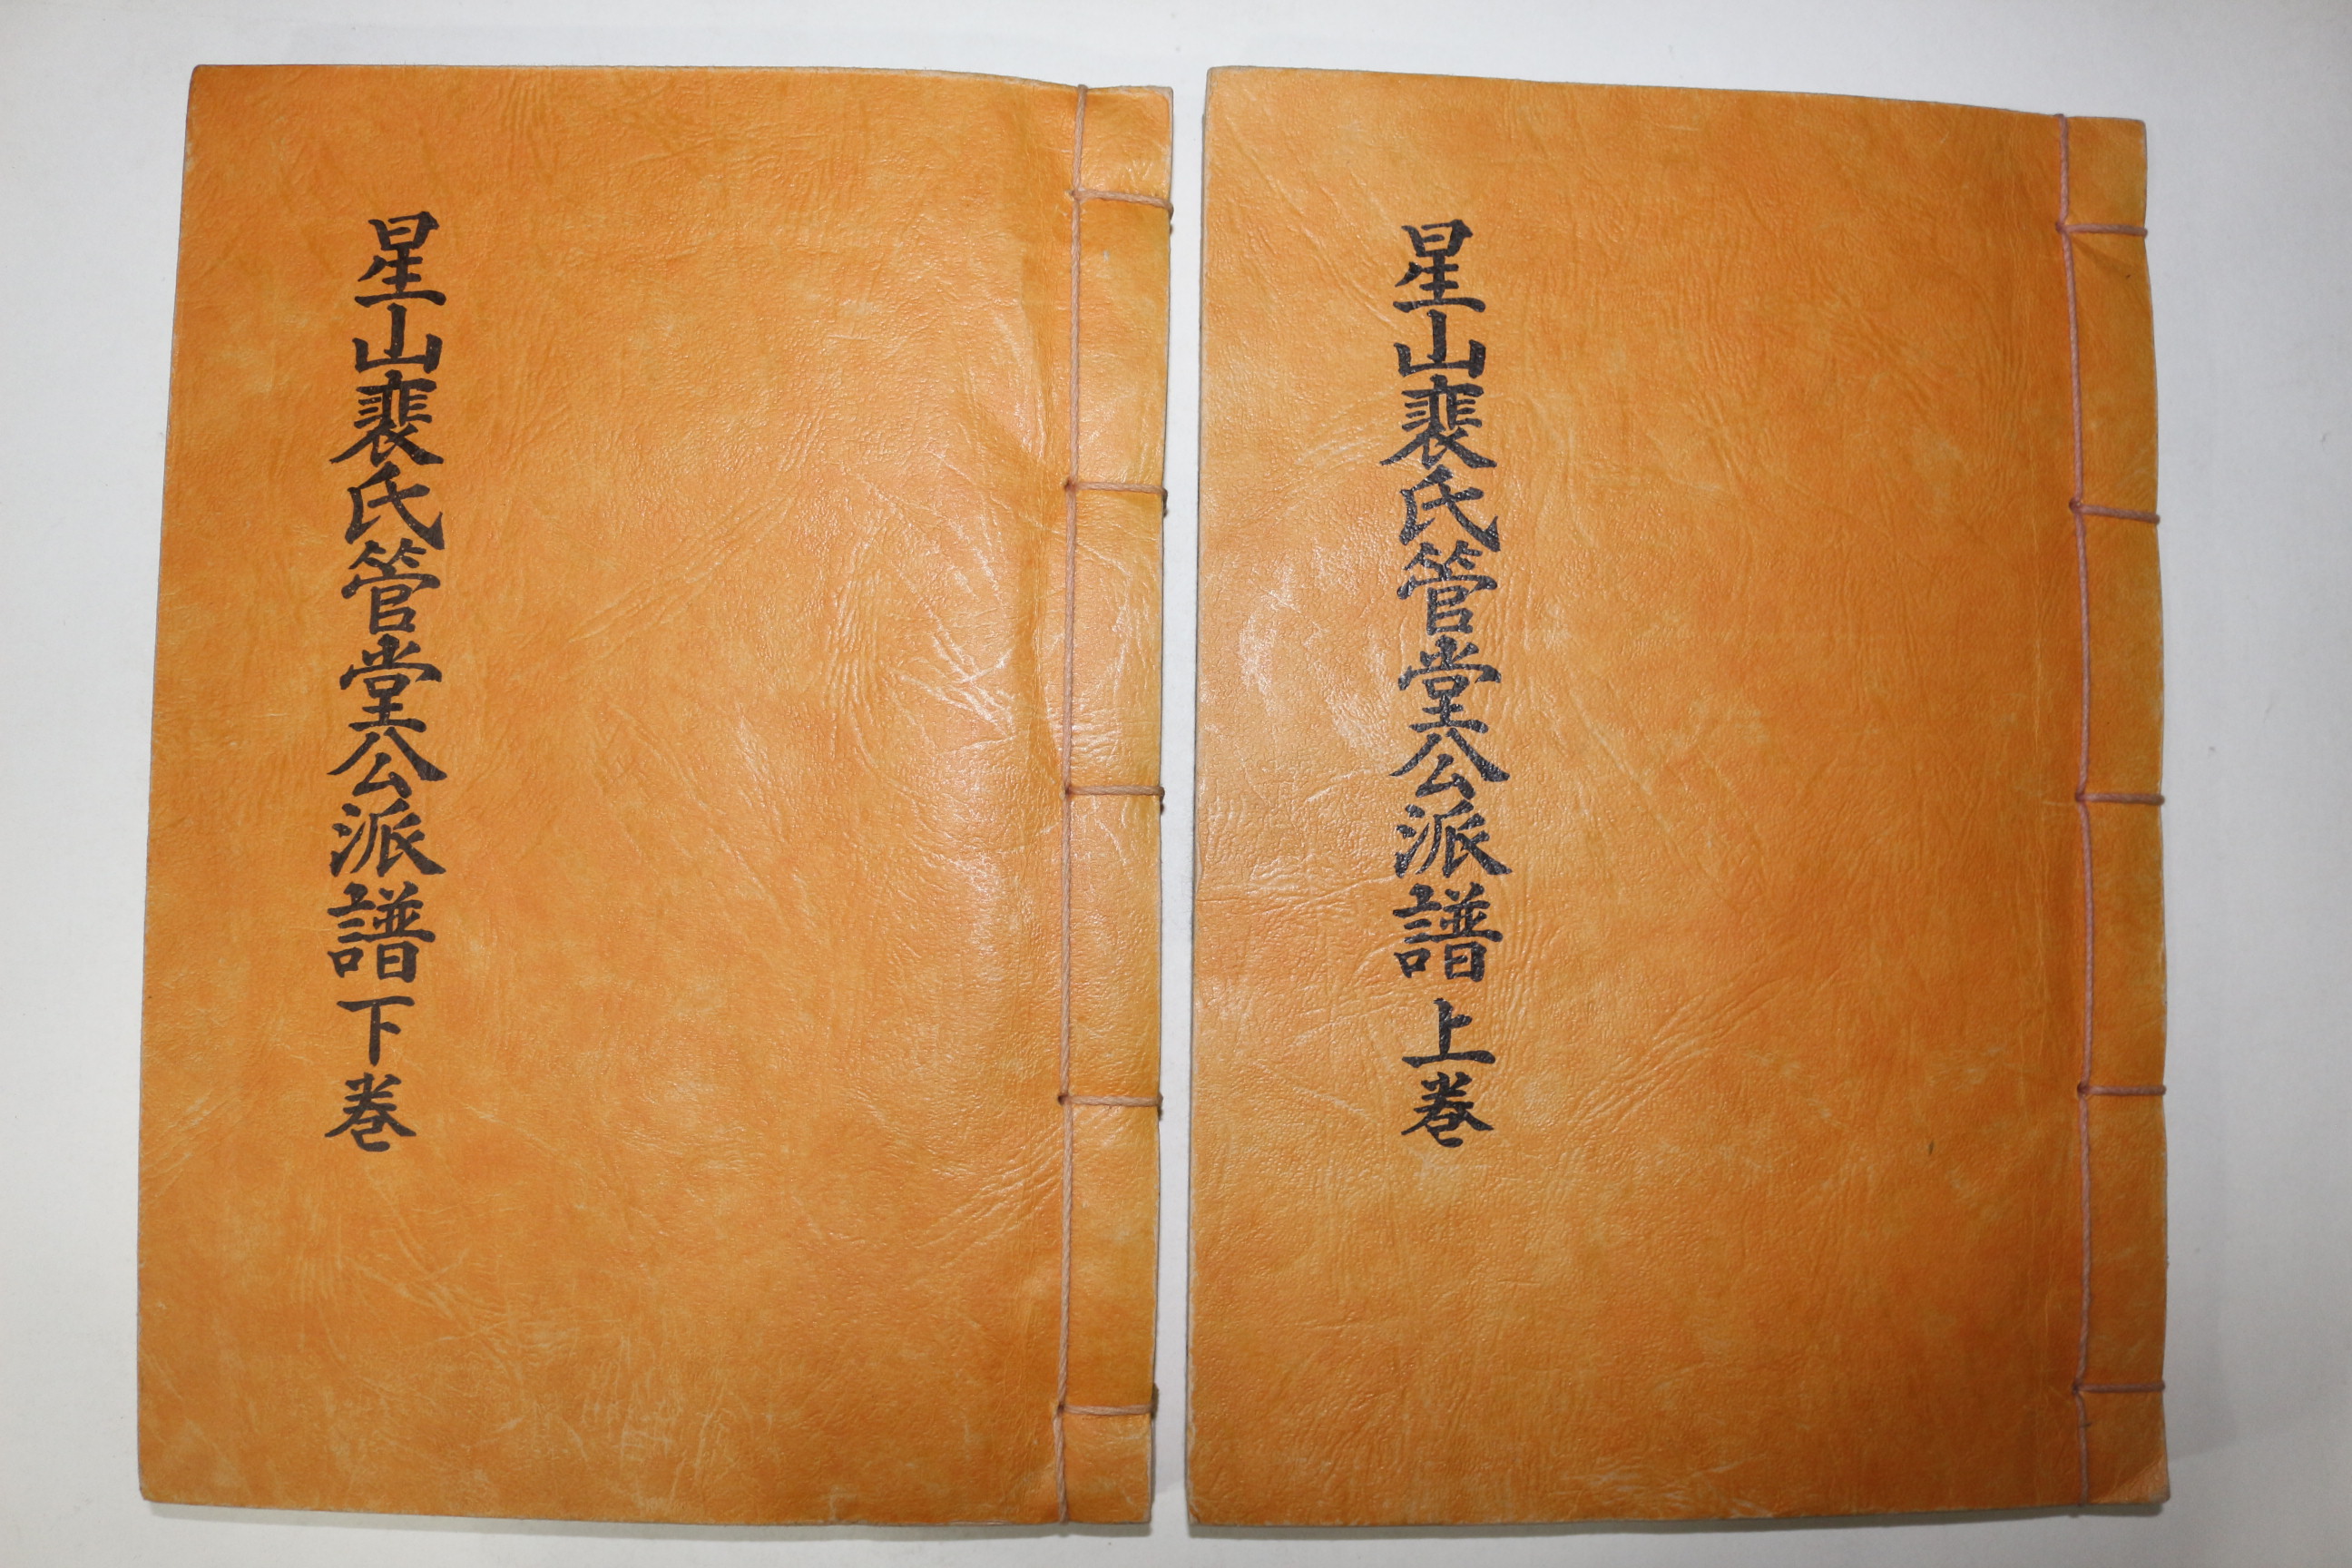 星山裵氏管堂公派譜 上卷
星山裵氏管堂公派譜 下卷